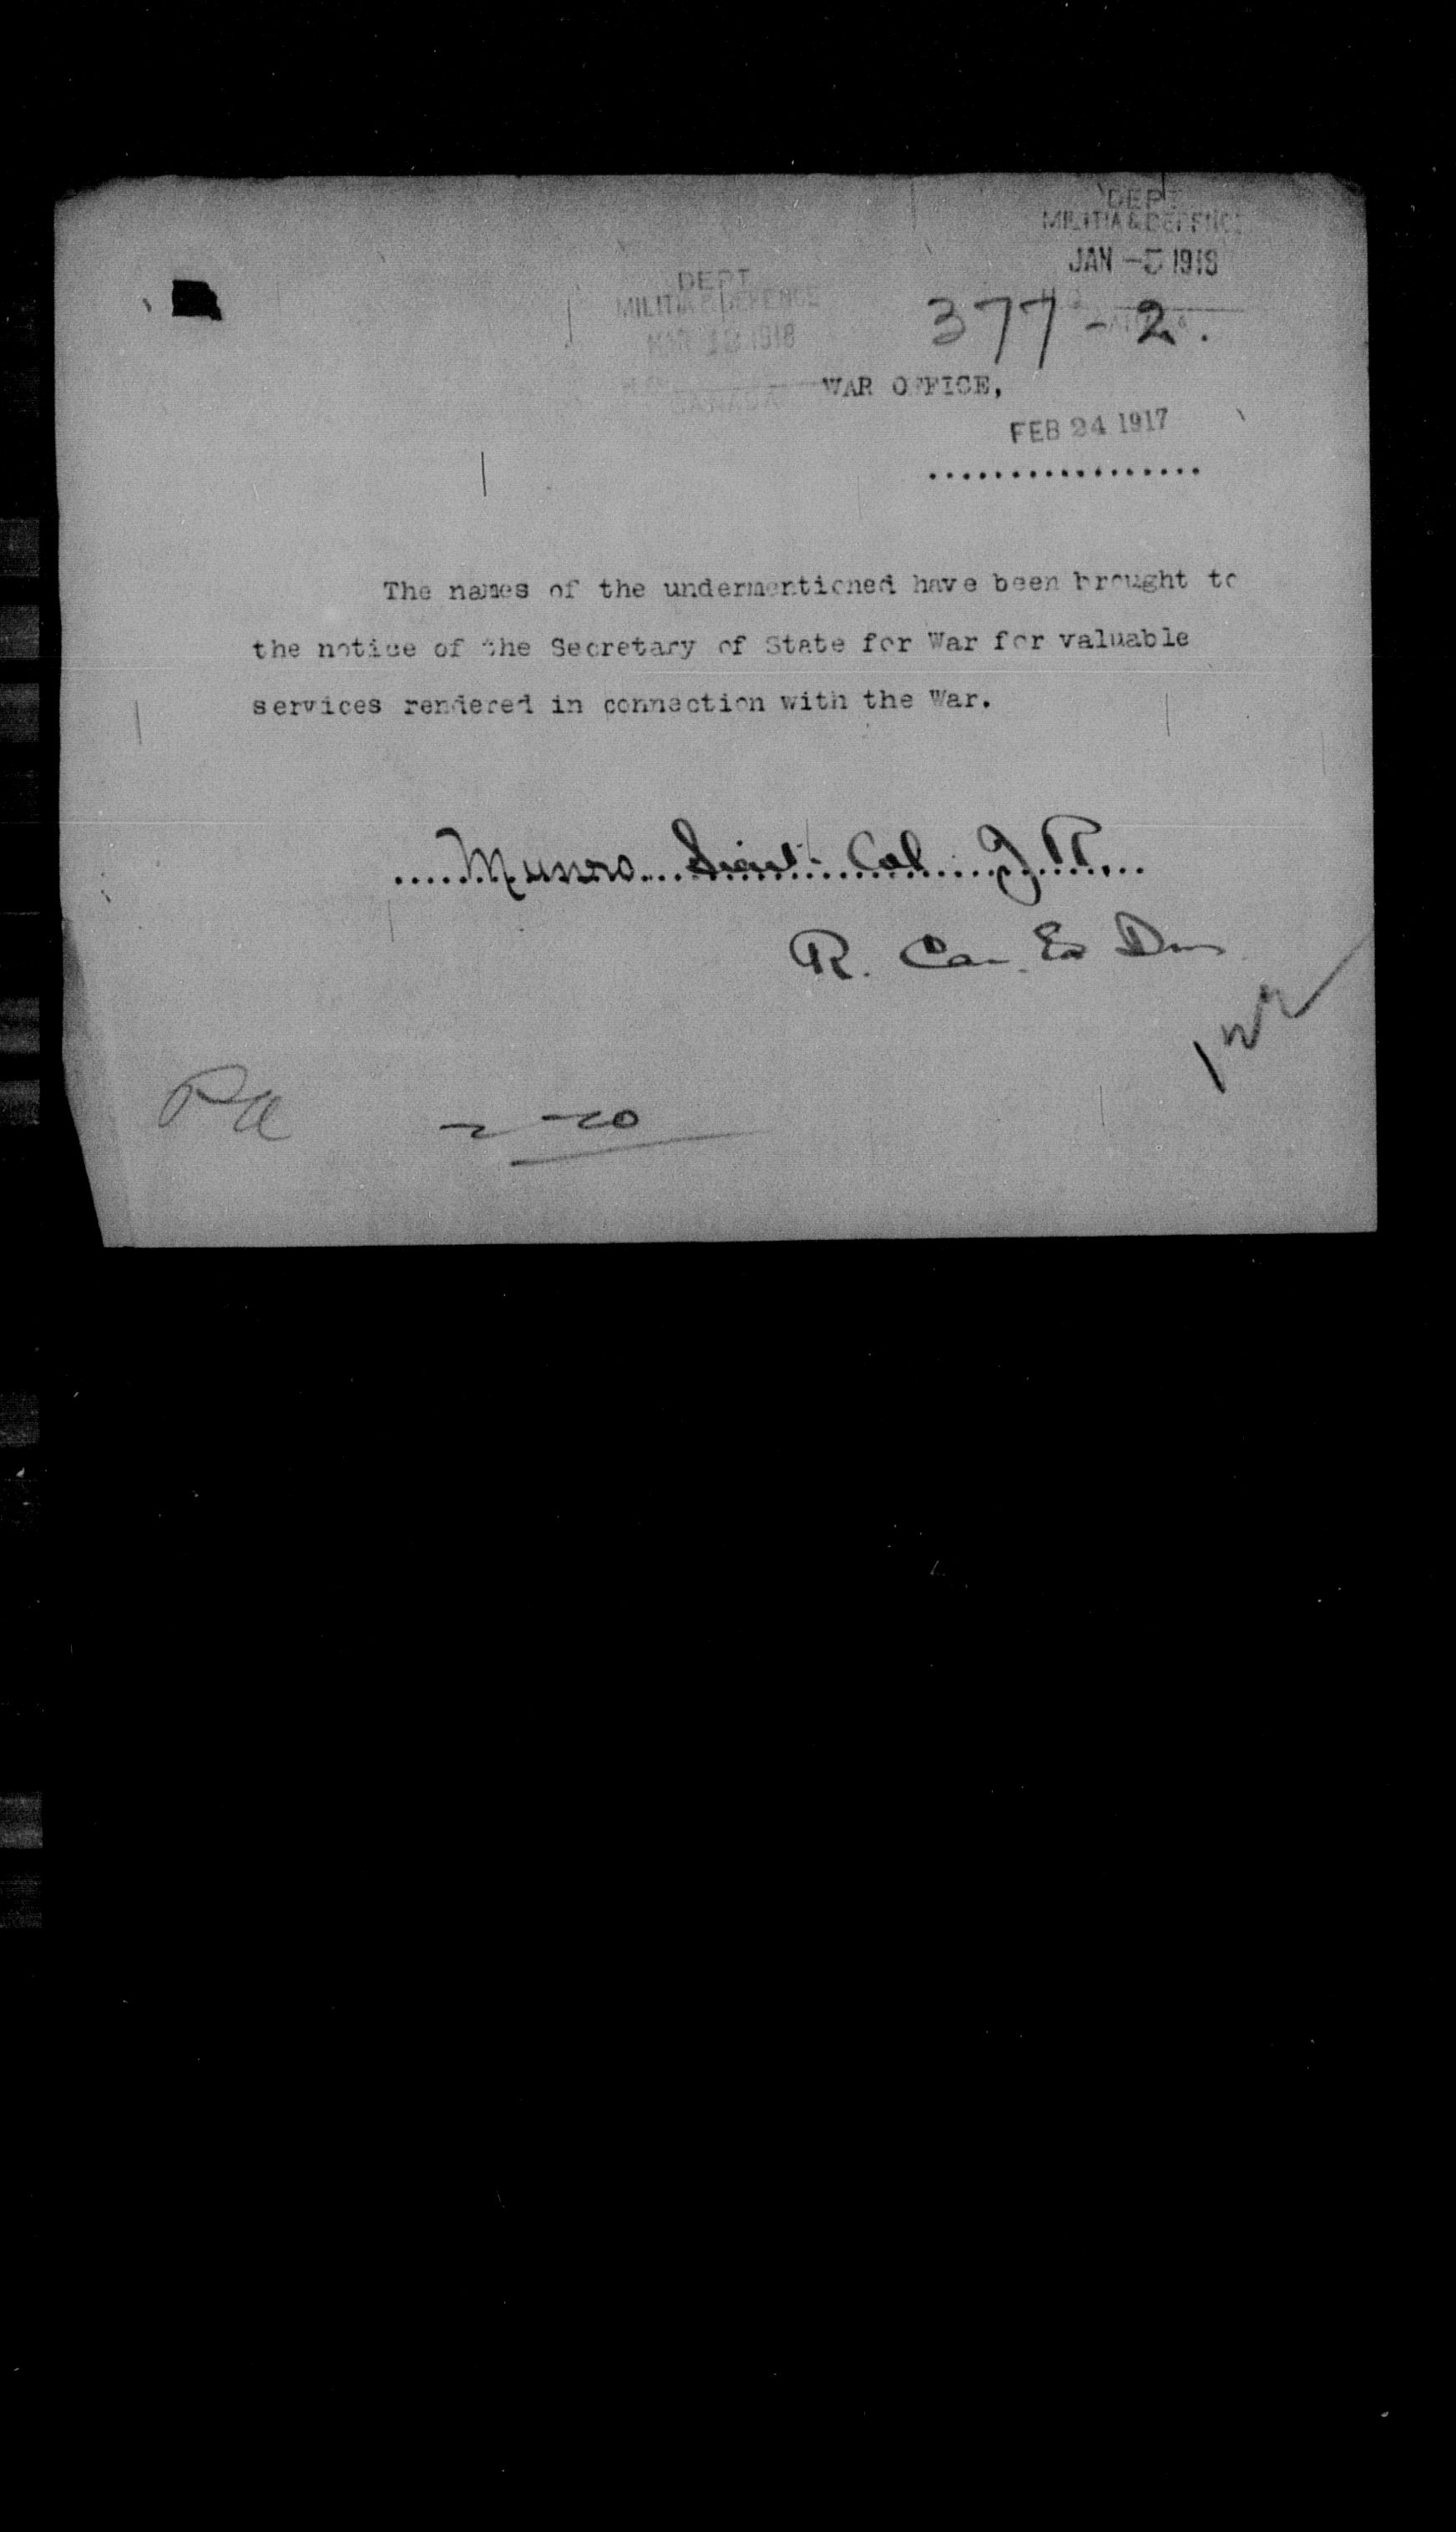 DEPT.
MILITIA & DEFENCE
JAN -5 1918
DEPT.
MILITIA & DEFENCE
MAR 1918
377-2.
CANADA
WAR OFFICE,
FEB 24 1917
..................
The names of the undermentioned have been brought to
the notice of the Secretary of State for War for valuable
services rendered in connection with the War.
Munro Lieut. Col.
R. Can.
PA